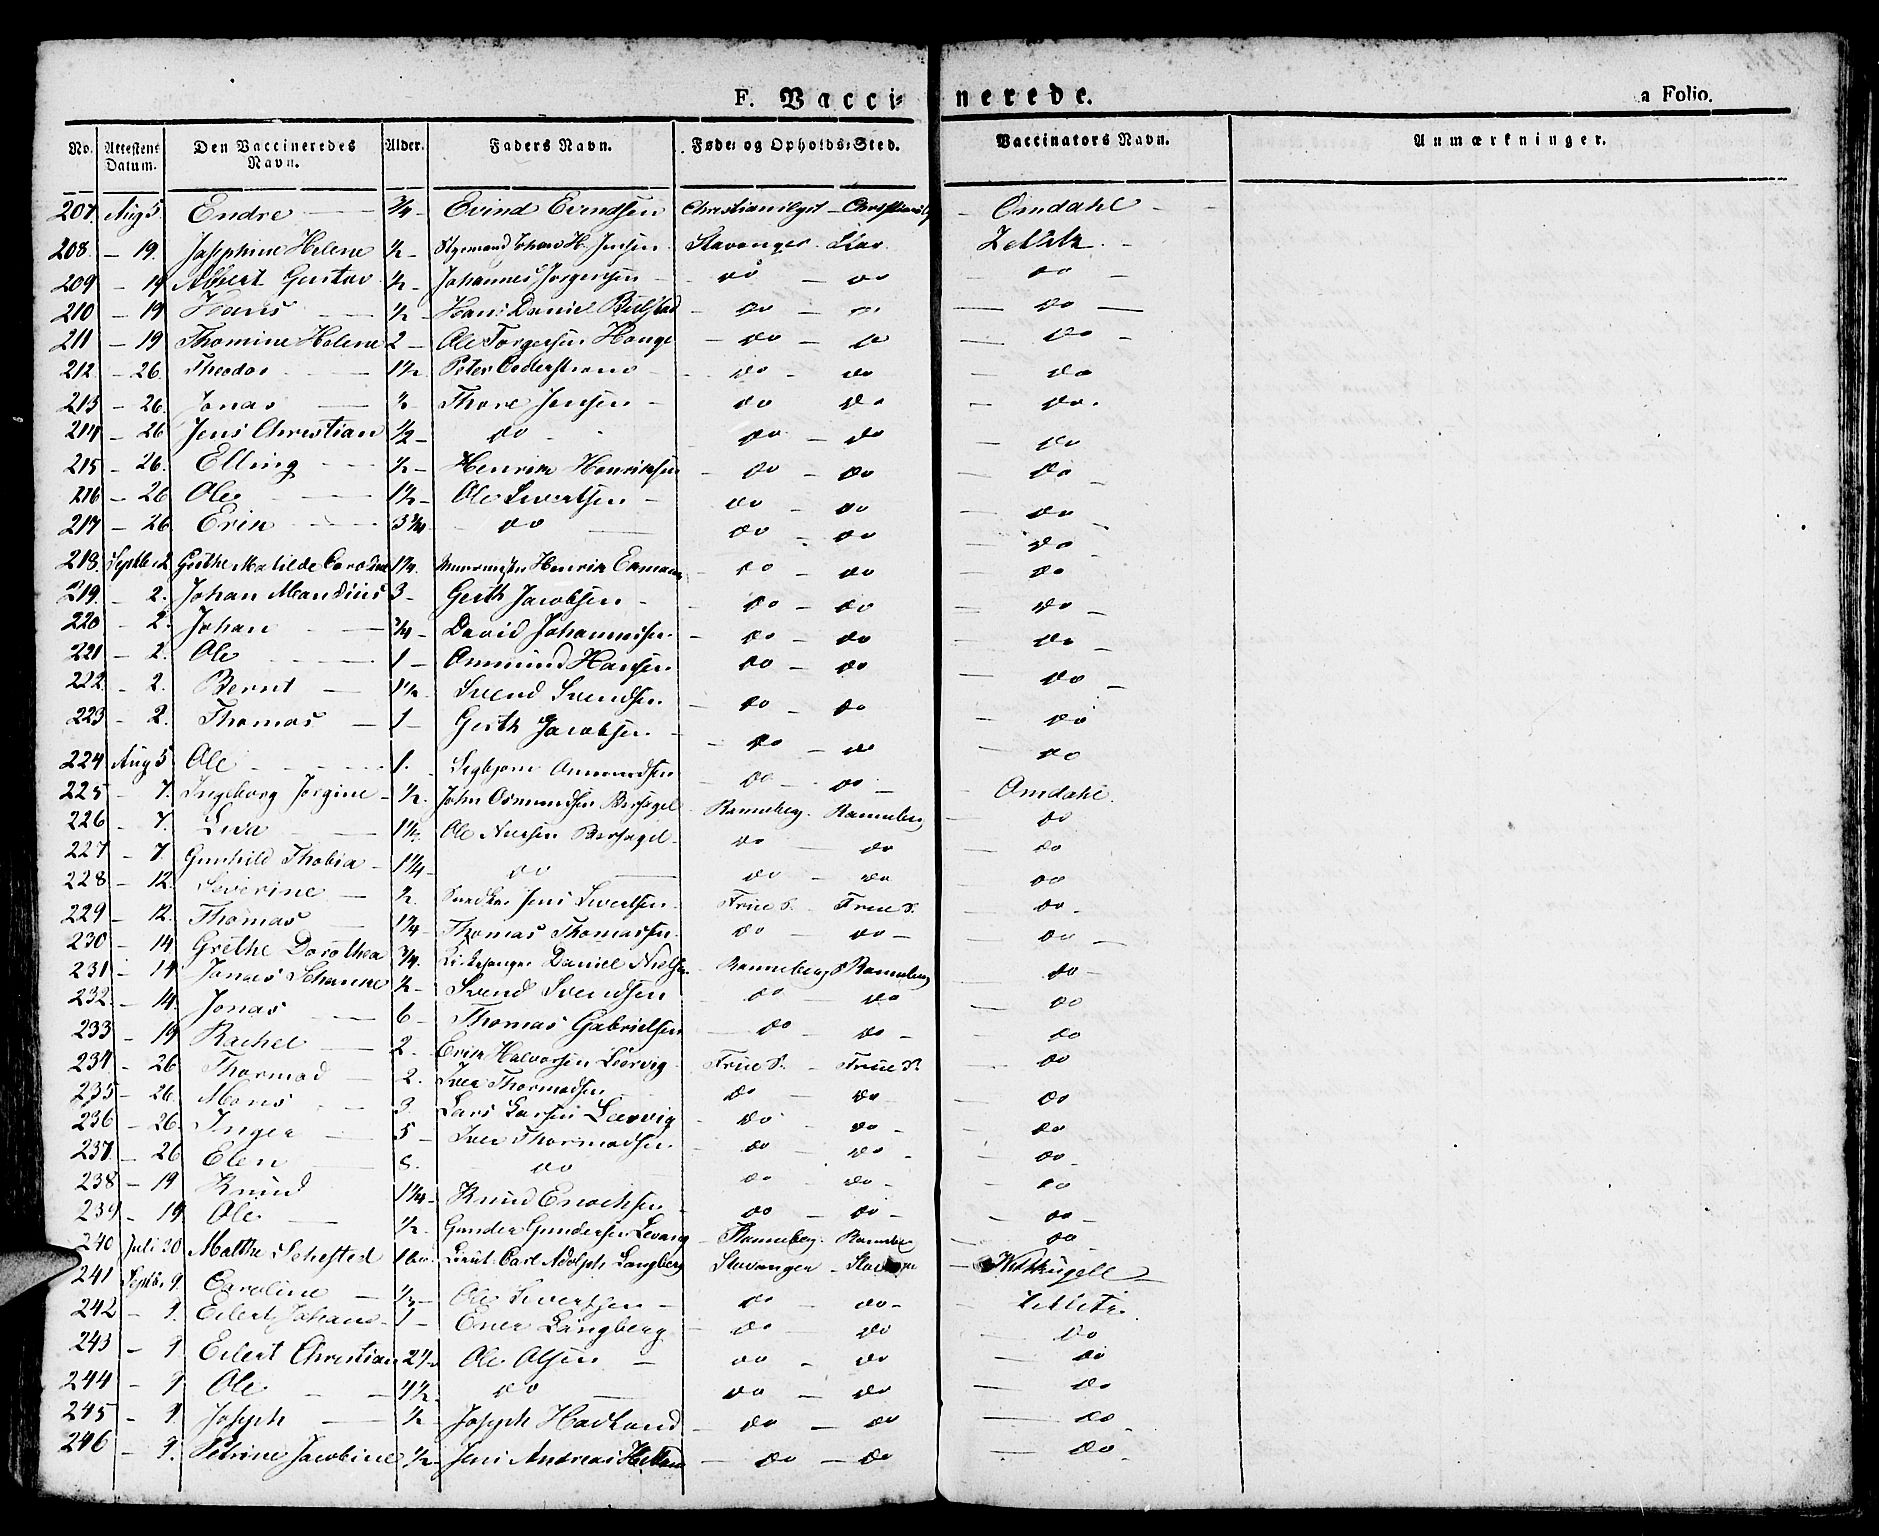 F. Vaccinerede.
a Folio.
No. Attestens Datum. Den Vaccineredes Navn. Alder. Faders Navn. Føde- og Opholds-Sted. Vaccinators Navn. Anmærkninger.
207 Aug 5 Endre 3/4 Evind Evendsen Omdahl
208 19 Josephine Helene 1/2 Johan H. Jensen Stavanger Stav
209 19 Albert Gustav 1/2 Johannes Jørgensen do do do
210 19 Hans 1/2 Hans Daniel do do do
211 19 Thomine Helene 2 Ole Torgersen Hauge do do do
212 26 Theodor 1 1/2 Peter Cederstrøm do do do
213 26 Jonas 1/2 Thore Jensen do do do
214 26 Jens Christian 1/2 do do do do
215 26 Elling 1/2 Henrik Henriksen do do do
216 26 Ole 1 1/2 Ole Sivertsen do do do
217 26 Erik 3 3/4 do do do do
218 Septbr 2 Grethe Matilde Caroline 1 1/4 Henrik do do do
219 2 Johan Mandius 3 Gerth Jacobsen do do do
220 2 Johan 3/4 David Johannessen do do do
221 2 Ole 1 Ommund Hansen do do do
222 2 Bernt 1 1/2 Svend Svendsen do do do
223 2 Thomas 1 Gerth Jacobsen do do do
224 Aug 5 Ole 1 Sigbjørn Ommundsen do do do
225 7 Ingeborg Jorgine 1/2 John Osmundsen Bersagel Ranneberg Ranneberg Omdahl
226 7 Siva 1 1/2 Ole Nielsen Bersagel do do do
227 7 Gunhild Thobia 1 1/4 do do do do
228 12 Severine 1/2 Jens Sivertsen Frue S. Frue S. do
229 12 Thomas 1 1/4 Thomas Thomassen do do do
230 14 Grethe Dorothea 3/4 Kirkesanger Daniel Nielsen Ranneberg Ranneberg do
231 14 Jonas 1/2 Svend Svendsen do do do
232 14 Jonas 6 Thomas Gabrielsen do do do
233 19 Rachel 2 Erik Halvorsen Frue S. Frue S. do
234 26 Thormod 2 Iver Thormodsen do do do
235 26 Mons 3 Lars Larsen do do do
236 26 Inger 5 Iver Thormodsen do do do
237 26 Elen 8 do do do do
238 19 Knud 1 1/4 Knud Enochsen do do do
239 19 Ole 1/2 Gunder Gundersen Ranneberg do
240 Juli 30 Malthe Sehested Lieut. Carl Adolph Langberg Stavanger
241 Septbr 9 Caroline Ole Sivertsen do do
242 9 Eilert Johan 1 Ener Langberg do do do
243 9 Eilert Christian Ole Olsen do do do
244 9 Ole 4 1/2 do do do do
245 9 Joseph 1/2 Joseph Hadland do do do
246 9 Petrine Jacobine 1/2 Jens Andreas do do do